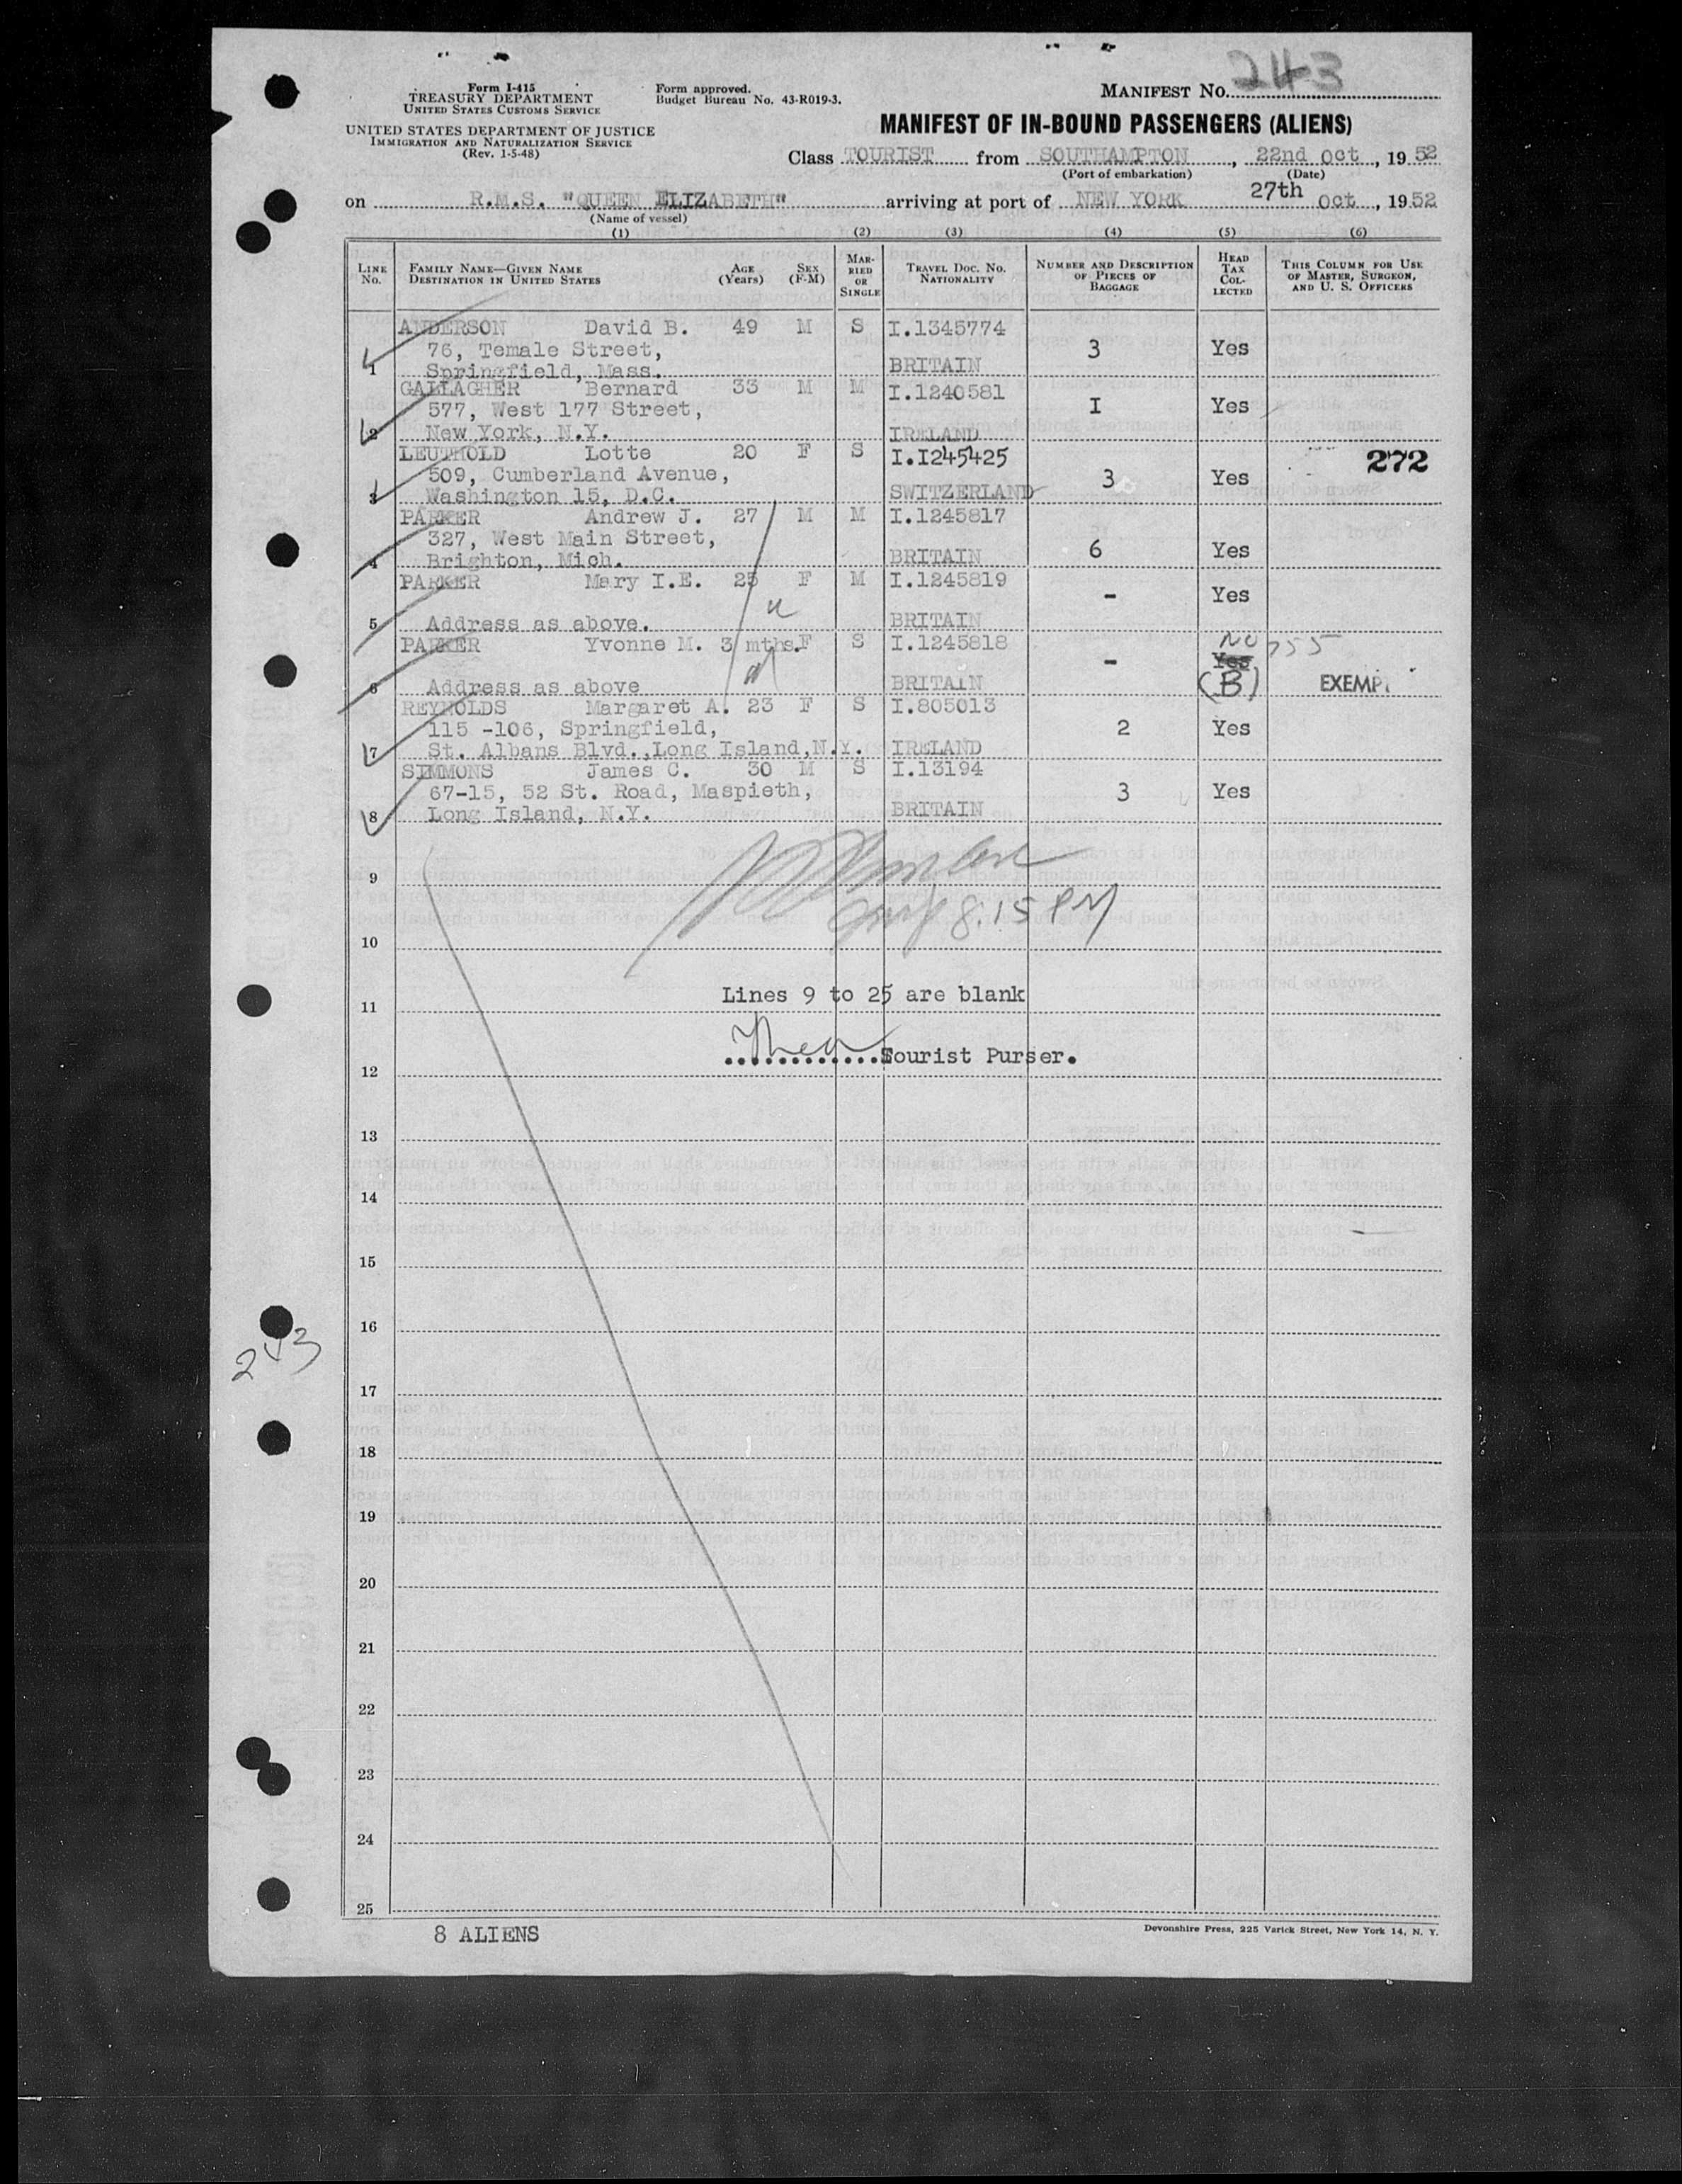 Form I-415
TREASURY DEPARTMENT
UNITED STATES CUSTOMS SERVICE
UNITED STATES DEPARTMENT OF JUSTICE
IMMIGRATION AND NATURALIZATION SERVICE
(Rev. 1-5-48)
Form approved.
Budget Bureau No. 43-R019-3.
MANIFEST No. 243
MANIFEST OF IN-BOUND PASSENGERS (ALIENS)
Class TOURIST from SOUTHAMPTON, 22nd Oct, 1952
(Port of embarkation) (Date)
on R.M.S. "QUEEN ELIZABETH" arriving at port of NEW YORK 27th Oct, 1952
(Name of vessel)
(1) (2) (3) (4) (5) (6)
LINE No. FAMILY NAME—GIVEN NAME DESTINATION IN UNITED STATES AGE (Years) SEX (F-M) MARRIED OR SINGLE TRAVEL DOC. No. NATIONALITY NUMBER AND DESCRIPTION OF PIECES OF BAGGAGE HEAD TAX COLLECTED THIS COLUMN FOR USE OF MASTER, SURGEON, AND U. S. OFFICERS
ANDERSON David B. 49 M S I.1345774
76, Temale Street, 3 Yes
1 Springfield, Mass. BRITAIN
GALLAGHER Bernard 33 M M I.1240581
577, West 177 Street, I Yes
2 New York, N.Y. IRELAND
LEUTHOLD Lotte 20 F S I.I245425 272
509, Cumberland Avenue, 3 Yes
3 Washington 15, D.C. SWITZERLAND
PARKER Andrew J. 27 M M I.1245817
327, West Main Street, 6 Yes
4 Brighton, Mich. BRITAIN
PARKER Mary I.E. 25 F M I.1245819
- Yes
5 Address as above. BRITAIN
PARKER Yvonne M. 3 mths. F S I.1245818 No 755
- Yes
6 Address as above BRITAIN (B) EXEMPT
REYNOLDS Margaret A. 23 F S I.805013
115 -106, Springfield, 2 Yes
7 St. Albans Blvd.,Long Island,N.Y. IRELAND
SIMMONS James C. 30 M S I.13194
67-15, 52 St. Road, Maspieth, 3 Yes
8 Long Island, N.Y. BRITAIN
9
8.15 PM
10
Lines 9 to 25 are blank
11
............Tourist Purser.
12
13
14
15
16
243
17
18
19
20
21
22
23
24
25
8 ALIENS
Devonshire Press, 225 Varick Street, New York 14, N. Y.